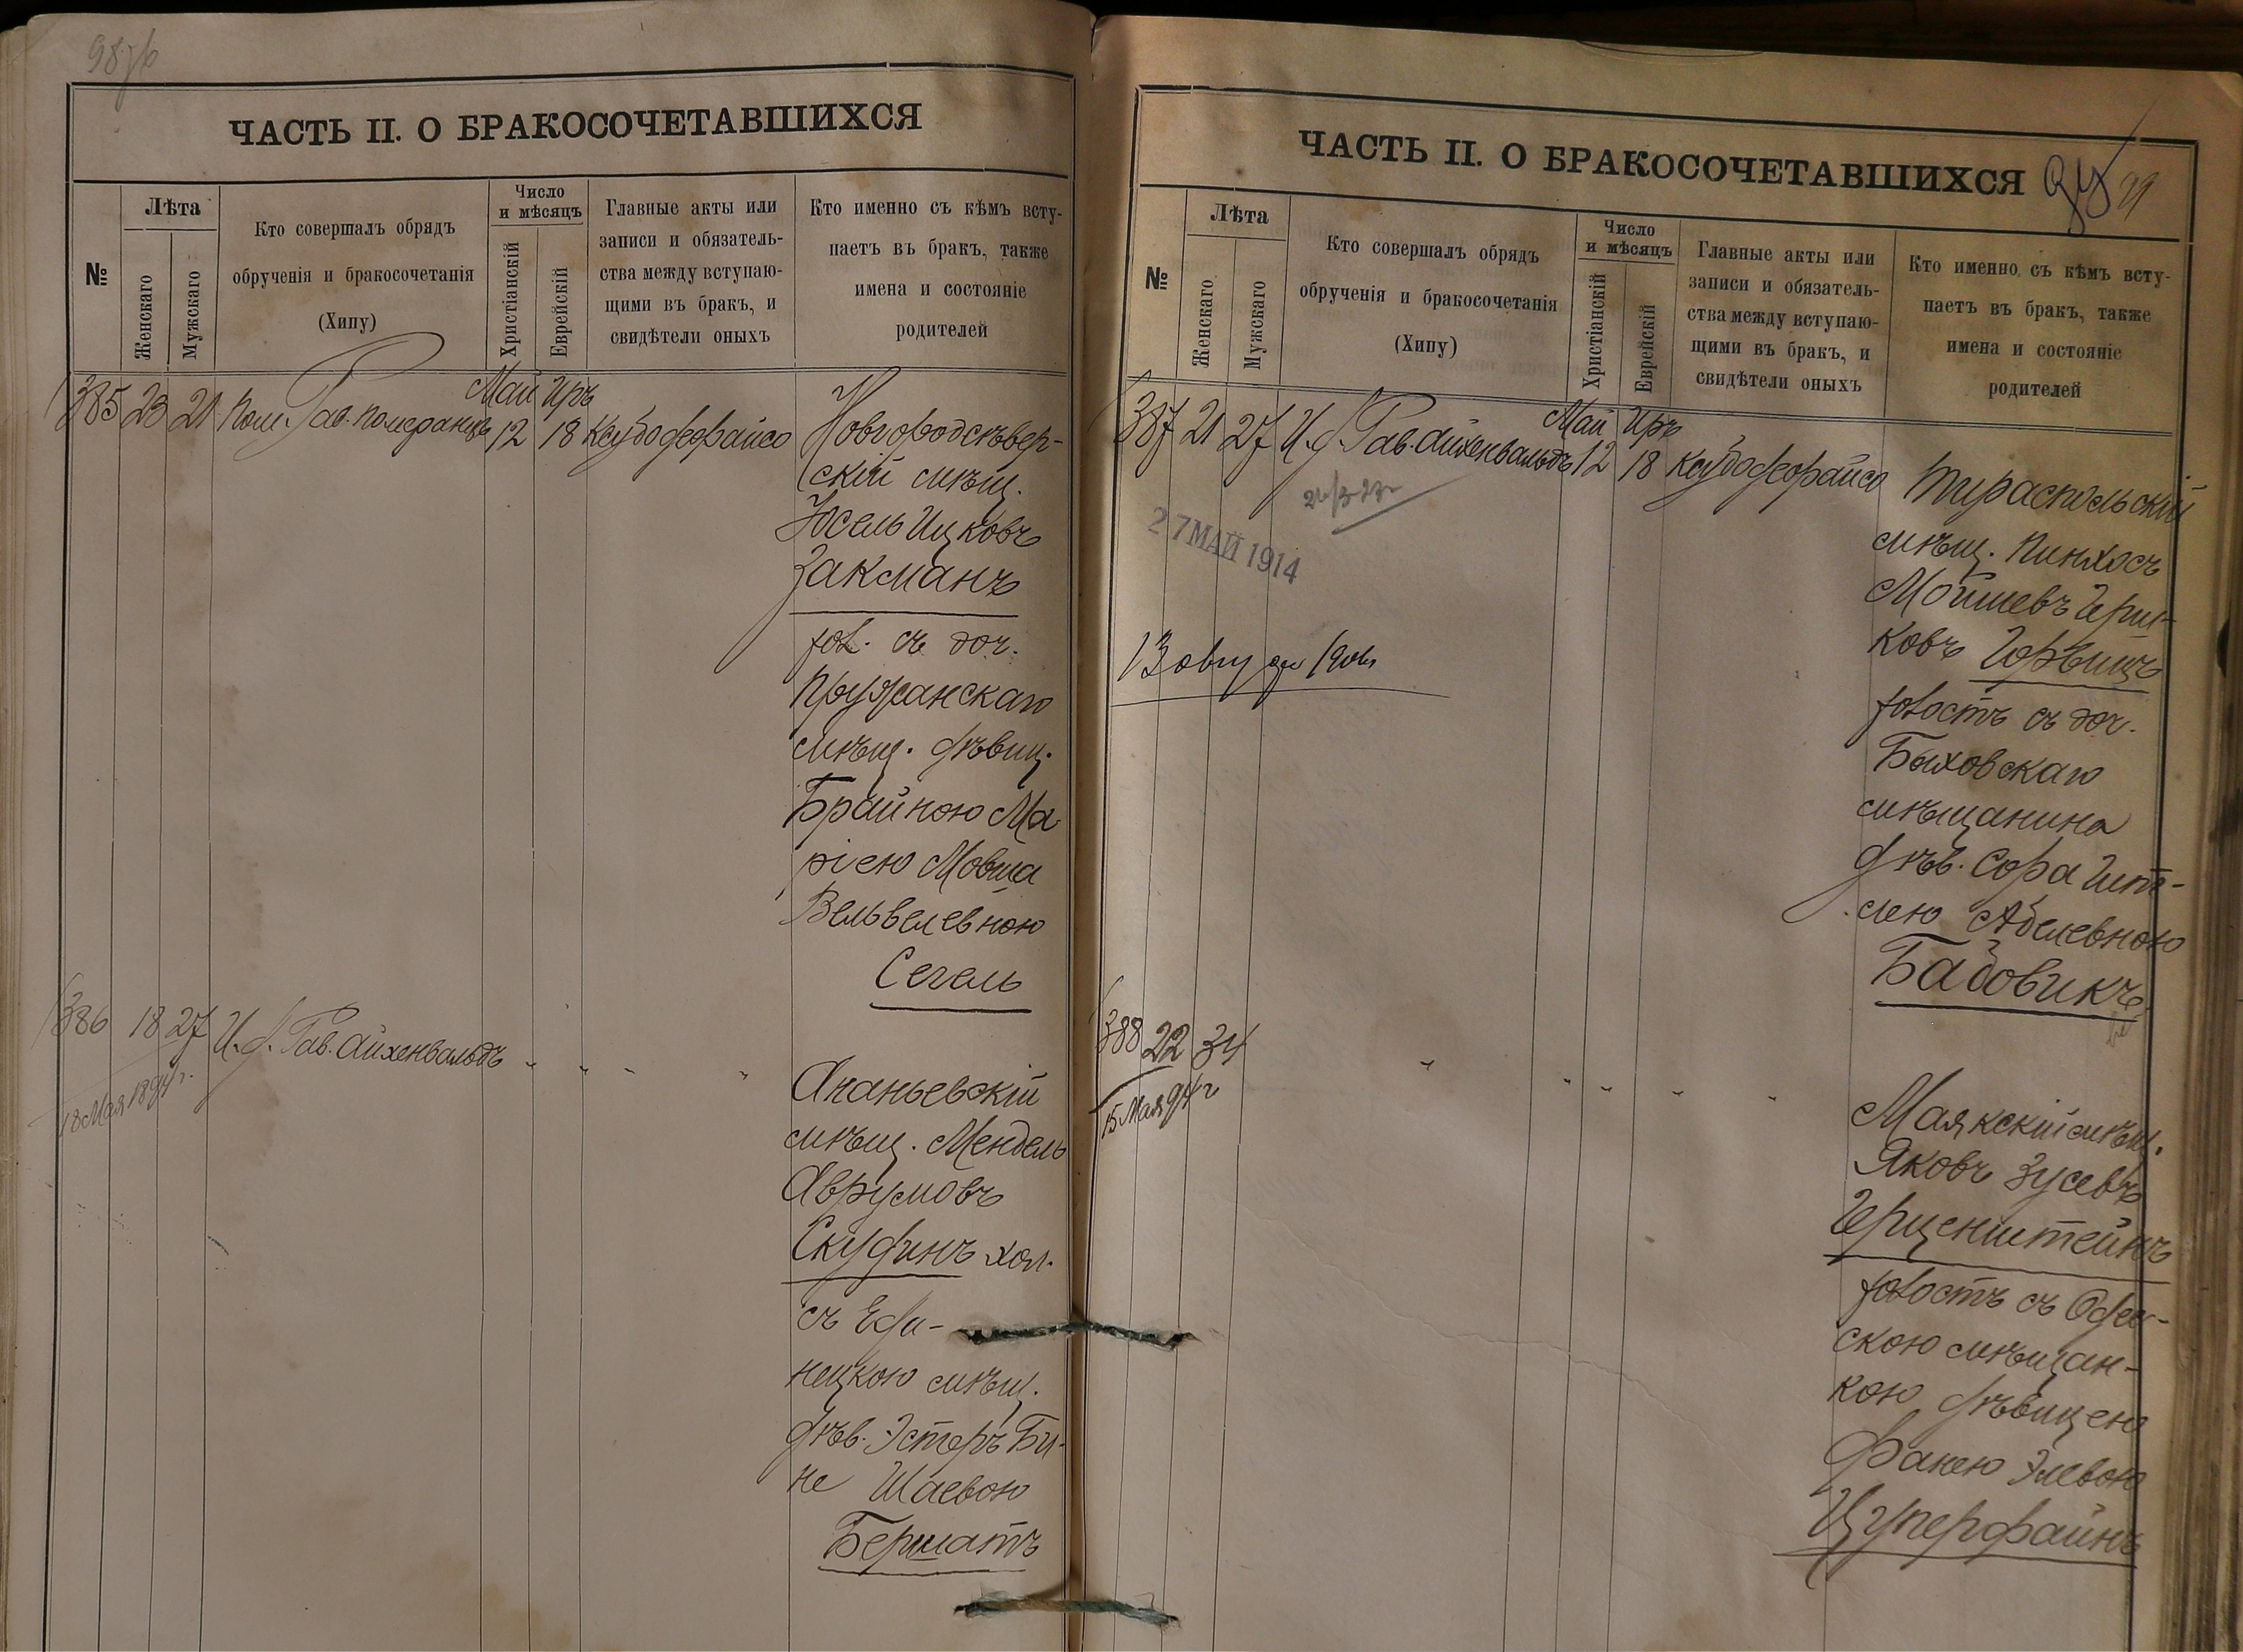 98 об
ЧАСТЬ II. О БРАКОСОЧЕТАВШИХСЯ
№
Лѣта
Женскаго
Мужскаго
Кто совершалъ обрядъ
обрученія и бракосочетанія
(Хипу)
Число
и мѣсяцъ
Христіанскій
Еврейскій
Главные акты или
записи и обязатель-
ства между вступаю-
щими въ бракъ, и
свидѣтели оныхъ
Кто именно съ кѣмъ всту-
паетъ въ бракъ, также
имена и состояніе
родителей
Май Иръ
385 23 21 Пом. Рав. Померанцъ 12 18 Ксубо дерайсо
Новгородсѣвер-
скій мѣщ.
Іосель Ицковъ
Закманъ
хол. съ доч.
Пружанскаго
мѣщ. дѣвиц.
Брайною Ма-
ріею Мовша
Вельвелевною
Сегель
386 18 27 И. д. Рав. Айхенвальдъ " " " "
18 Мая 1894 г.
Ананьевскій
мѣщ. Мендель
Аврумовъ
Скудинъ хол.
съ Еди-
нецкою мѣщ.
дѣв. Эстеръ Би-
не Шаевою
Бершатъ
ЧАСТЬ II. О БРАКОСОЧЕТАВШИХСЯ
99
№
Лѣта
Женскаго
Мужскаго
Кто совершалъ обрядъ
обрученія и бракосочетанія
(Хипу)
Число
и мѣсяцъ
Христіанскій
Еврейскій
Главные акты или
записи и обязатель-
ства между вступаю-
щими въ бракъ, и
свидѣтели оныхъ
Кто именно съ кѣмъ всту-
паетъ въ бракъ, также
имена и состояніе
родителей
Май Иръ
387 21 27 И. д. Рав. Айхенвальдъ 12 18 Ксубо дерайсо
27 МАЙ 1914
Тираспольскій
мѣщ. Пинхосъ
Мойшевъ Герш-
ковъ Горвицъ
холостъ съ доч.
Быховскаго
мѣщанина
дѣв. Сора Гит-
лею Абелевною
Бабовикъ
388 22 34 " " " " "
15 Мая 94 г
Маякскій мѣщ.
Яковъ Зусевъ
Герценштейнъ
холостъ съ Одес-
скою мѣщан-
кою дѣвицею
Фанею Элевою
Цуперфайнъ